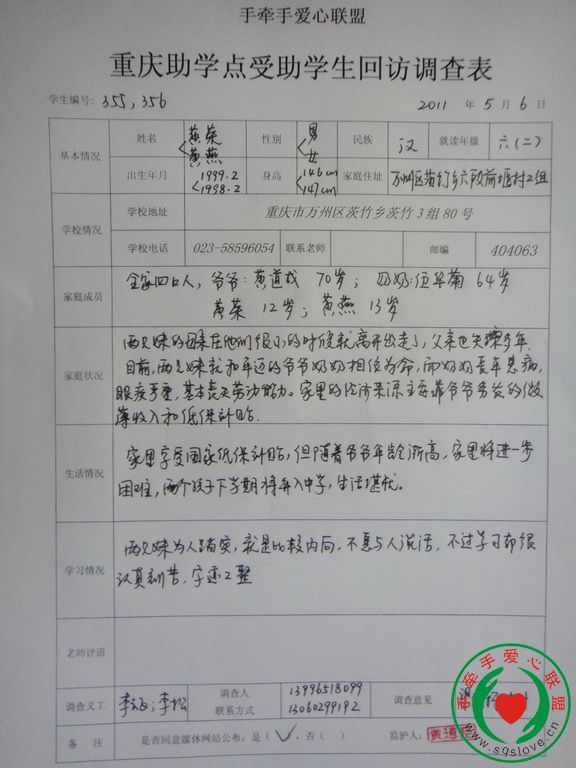 手牵手爱心联盟
重庆助学点受助学生回访调查表
学生编号: 355, 356 2011 年 5 月 6 日
基本情况 姓名 黄荣 黄燕 性别 男 女 民族 汉 就读年级 六(二)
出生年月 1999.2 1998.2 身高 146cm 147cm 家庭住址 万州区茨竹乡 村2组
学校情况 学校地址 重庆市万州区茨竹乡茨竹3组80号
学校电话 023-58596054 联系老师 邮编 404063
家庭成员 全家四口人, 爷爷: 黄道成 70岁; 奶奶: 64岁
黄荣 12岁; 黄燕 13岁
家庭状况 两兄妹的母亲在他们很小的时候就离开出走了, 父亲也失踪多年.
目前, 两兄妹就和年迈的爷爷奶奶相依为命, 而奶奶长年患病,
眼疾严重, 基本丧失劳动能力。家里的经济来源主要靠爷爷务农的微
薄收入和低保补贴.
生活情况 家里享受国家低保补贴, 但随着爷爷年龄渐高, 家里将进一步
困难, 两个孩子下学期将升入中学, 生活堪忧。
学习情况 两兄妹为人踏实, 就是比较内向. 不愿与人说话, 不过学习却很
认真刻苦, 字迹工整
老师评语
调查义工 李松 调查人联系方式 13996518099 13060299192 调查意见
备 注 是否同意媒体网站公布: 是( √ ), 否( ) 监护人:
西牵手爱心联盟
www.sqslove.cn